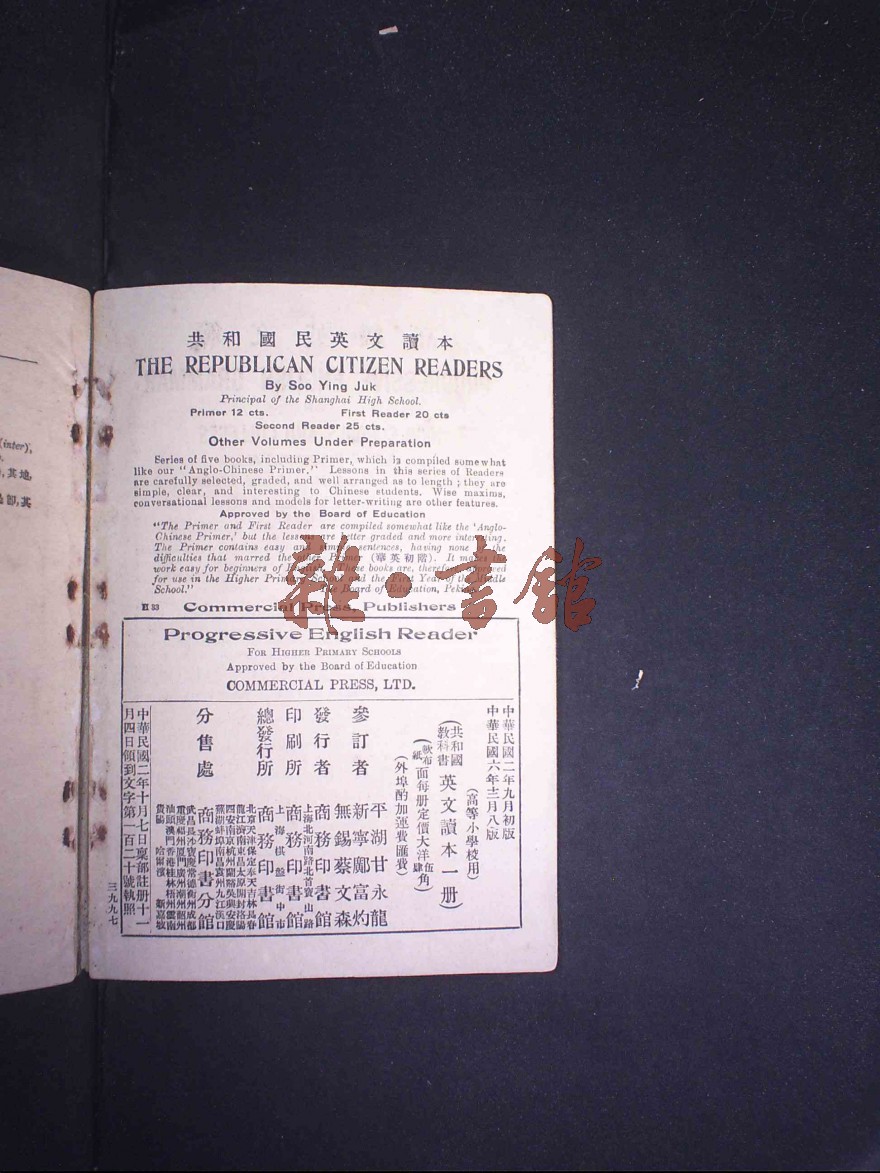 共和國民英文讀本
THE REPUBLICAN CITIZEN READERS
By Soo Ying Juk
Principal of the Shanghai High School.
Primer 12 cts. First Reader 20 cts
Second Reader 25 cts.
Other Volumes Under Preparation
Series of five books, including Primer, which is compiled somewhat
like our "Anglo-Chinese Primer." Lessons in this series of Readers
are carefully selected, graded, and well arranged as to length; they are
simple, clear, and interesting to Chinese students. Wise maxims,
conversational lessons and models for letter-writing are other features.
Approved by the Board of Education
"The Primer and First Reader are compiled somewhat like the 'Anglo-
Chinese Primer,' but the lessons are better graded and more interesting.
The Primer contains easy and simple sentences, having none of the
difficulties that marred the other Primer (華英初階). It makes the
work easy for beginners of English. These books are, therefore, approved
for use in the Higher Primary School and the First Year of the Middle
School." The Board of Education, Peking
E 33 Commercial Press, Publishers
Progressive English Reader
FOR HIGHER PRIMARY SCHOOLS
Approved by the Board of Education
COMMERCIAL PRESS, LTD.
中華民國二年九月初版
中華民國六年三月八版
(高等小學校用)
(共和國教科書 英文讀本一册)
(紙面每册定價大洋 角)
(外埠酌加運費匯費)
參訂者 平湖甘永龍
新寧鄺富灼
無錫蔡文森
發行者 商務印書館
上海北河南路北首寶山路
印刷所 商務印書館
上海棋盤街中市
總發行所 商務印書館
北京天津保定奉天吉林長春
龍江濟南東昌太原開封洛陽
西安南京杭州蘭谿吳興安慶
蕪湖蚌埠南昌袁州九江漢口
分售處 商務印書分館
武昌長沙寶慶常德衡州成都
重慶福州厦門廣州潮州韶州
汕頭澳門香港桂林梧州雲南
貴陽 哈爾濱 新嘉坡
中華民國二年十月七日稟部註册十一
月四日領到文字第一百二十號執照
三九九七
(inter),
其地
部,其
雜·書館